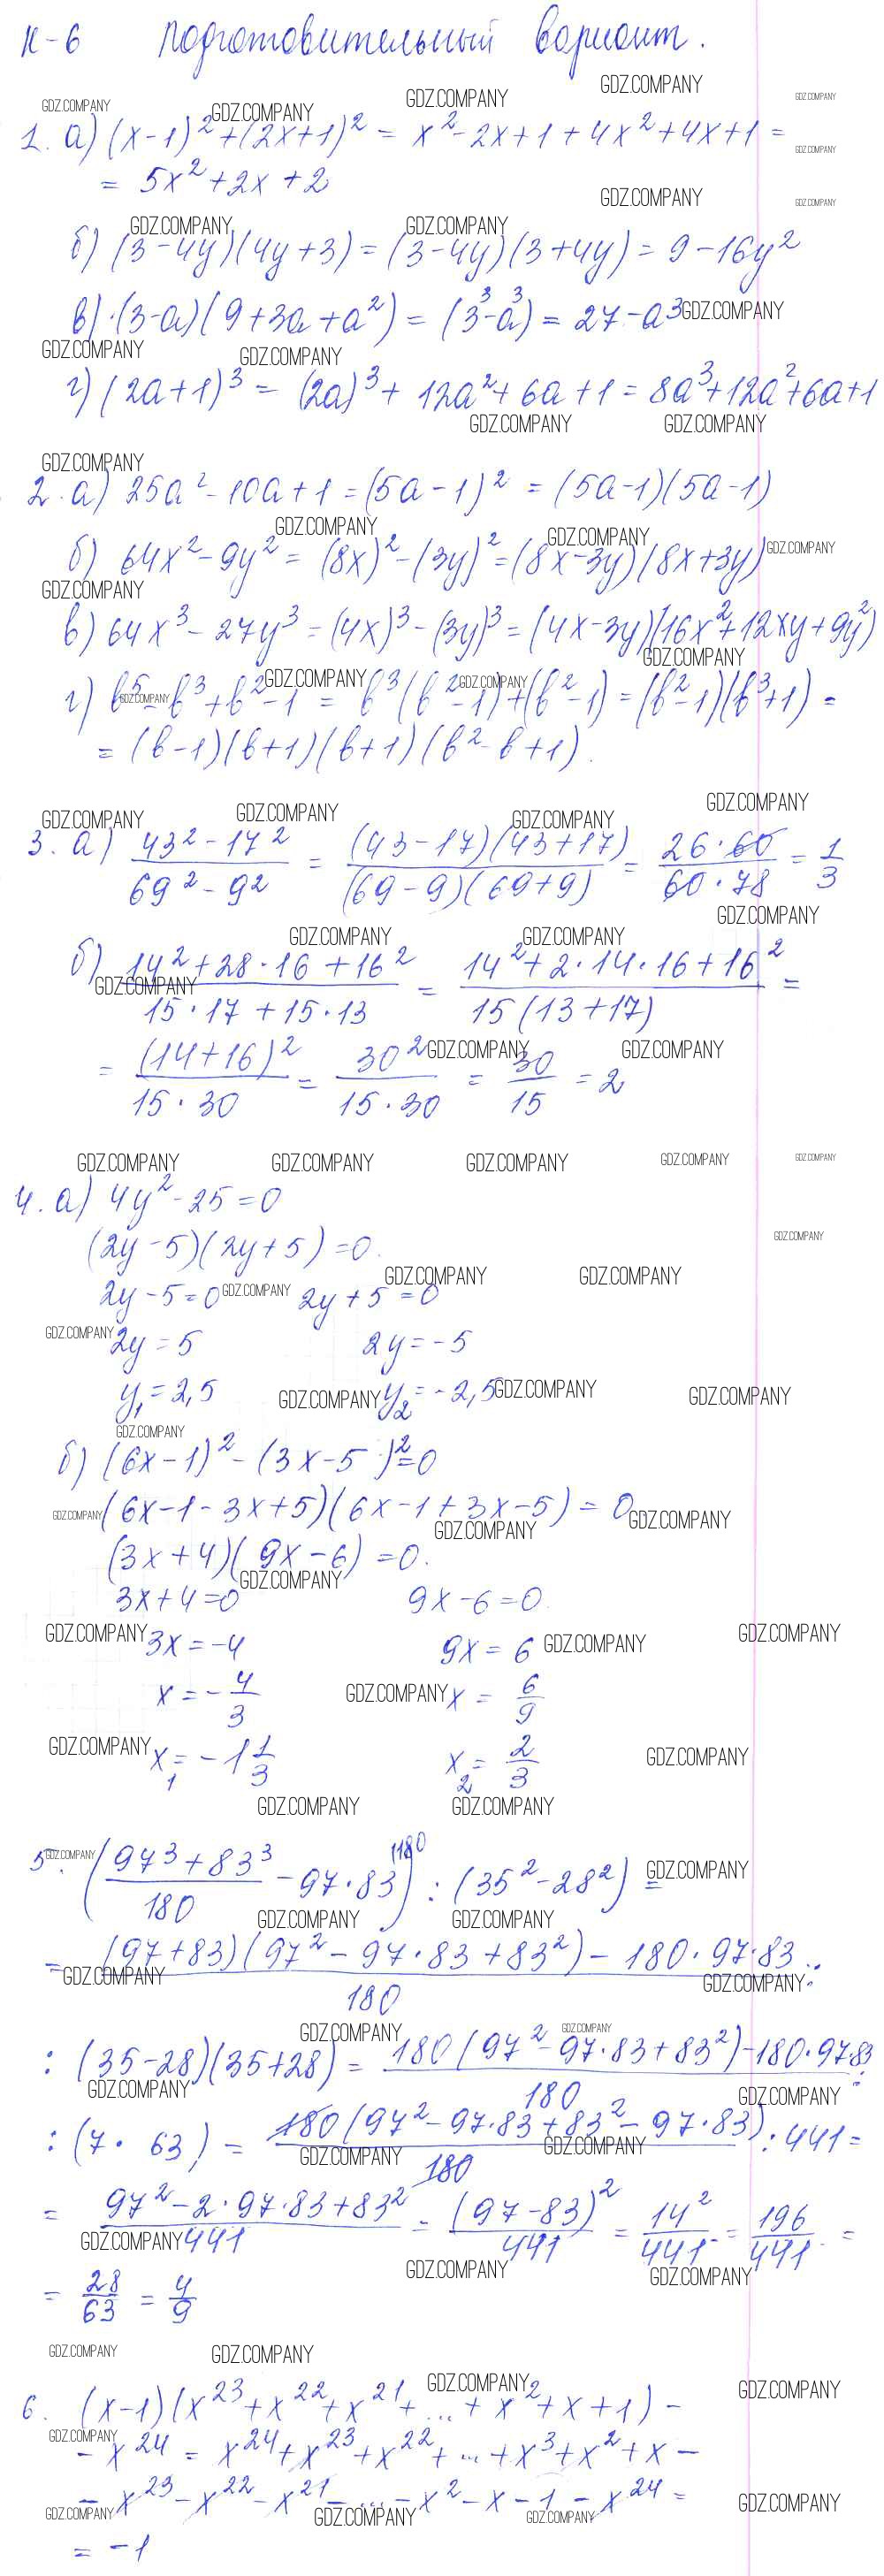 К-6 подготовительный вариант.
1. а) (x-1)² + (2x+1)² = x² - 2x + 1 + 4x² + 4x + 1 =
= 5x² + 2x + 2
б) (3-4y)(4y+3) = (3-4y)(3+4y) = 9 - 16y²
в) (3-a)(9+3a+a²) = (3³-a³) = 27 - a³
г) (2a+1)³ = (2a)³ + 12a² + 6a + 1 = 8a³ + 12a² + 6a + 1
2. а) 25a² - 10a + 1 = (5a-1)² = (5a-1)(5a-1)
б) 64x² - 9y² = (8x)² - (3y)² = (8x-3y)(8x+3y)
в) 64x³ - 27y³ = (4x)³ - (3y)³ = (4x-3y)(16x²+12xy+9y²)
г) b⁵ - b³ + b² - 1 = b³(b²-1) + (b²-1) = (b²-1)(b³+1) =
= (b-1)(b+1)(b+1)(b²-b+1).
3. а) (43² - 17²)/(69² - 9²) = ((43-17)(43+17))/((69-9)(69+9)) = (26·60)/(60·78) = 1/3
б) (14² + 28·16 + 16²)/(15·17 + 15·13) = (14² + 2·14·16 + 16²)/(15(13+17)) =
= (14+16)²/(15·30) = 30²/(15·30) = 30/15 = 2
4. а) 4y² - 25 = 0
(2y-5)(2y+5) = 0.
2y - 5 = 0 2y + 5 = 0
2y = 5 2y = -5
y₁ = 2,5 y₂ = -2,5
б) (6x-1)² - (3x-5)² = 0
(6x-1-3x+5)(6x-1+3x-5) = 0
(3x+4)(9x-6) = 0.
3x+4=0 9x-6=0.
3x = -4 9x = 6
x = -4/3 x = 6/9
x₁ = -1 1/3 x₂ = 2/3
5. ((97³ + 83³)/180 - 97·83 (180) ) : (35² - 28²) =
= ((97+83)(97² - 97·83 + 83²) - 180·97·83)/180 :
: (35-28)(35+28) = (180(97² - 97·83 + 83²) - 180·97·83)/180 :
: (7·63) = (180(97² - 97·83 + 83² - 97·83))/180 : 441 =
= (97² - 2·97·83 + 83²)/441 = (97-83)²/441 = 14²/441 = 196/441 =
= 28/63 = 4/9
6. (x-1)(x²³ + x²² + x²¹ + ... + x² + x + 1) -
- x²⁴ = x²⁴ + x²³ + x²² + ... + x³ + x² + x -
- x²³ - x²² - x²¹ - ... - x² - x - 1 - x²⁴ =
= -1
GDZ.COMPANY